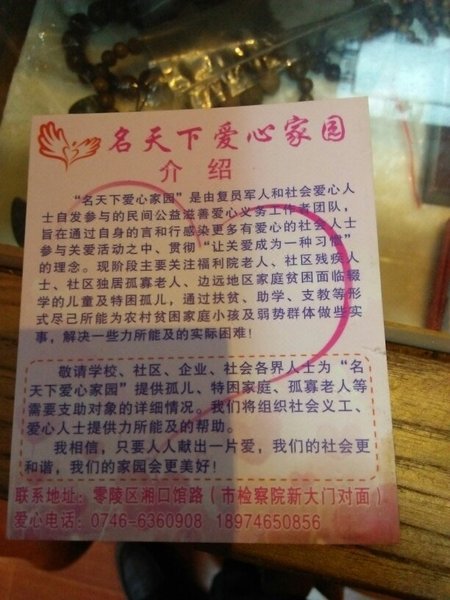 名天下爱心家园
介绍
“名天下爱心家园”是由复员军人和社会爱心人
士自发参与的民间公益滋善爱心义务工作者团队，
旨在通过自身的言和行感染更多有爱心的社会人士
参与关爱活动之中、贯彻“让关爱成为一种习惯”
的理念。现阶段主要关注福利院老人、社区残疾人
士、社区独居孤寡老人、边远地区家庭贫困面临辍
学的儿童及特困孤儿，通过扶贫、助学、支教等形
式尽己所能为农村贫困家庭小孩及弱势群体做些实
事，解决一些力所能及的实际困难！
敬请学校、社区、企业、社会各界人士为“名
天下爱心家园”提供孤儿、特困家庭、孤寡老人等
需要支助对象的详细情况。我们将组织社会义工、
爱心人士提供力所能及的帮助。
我相信，只要人人献出一片爱，我们的社会更
和谐，我们的家园会更美好！
联系地址：零陵区湘口馆路（市检察院新大门对面）
爱心电话：0746-6360908 18974650856